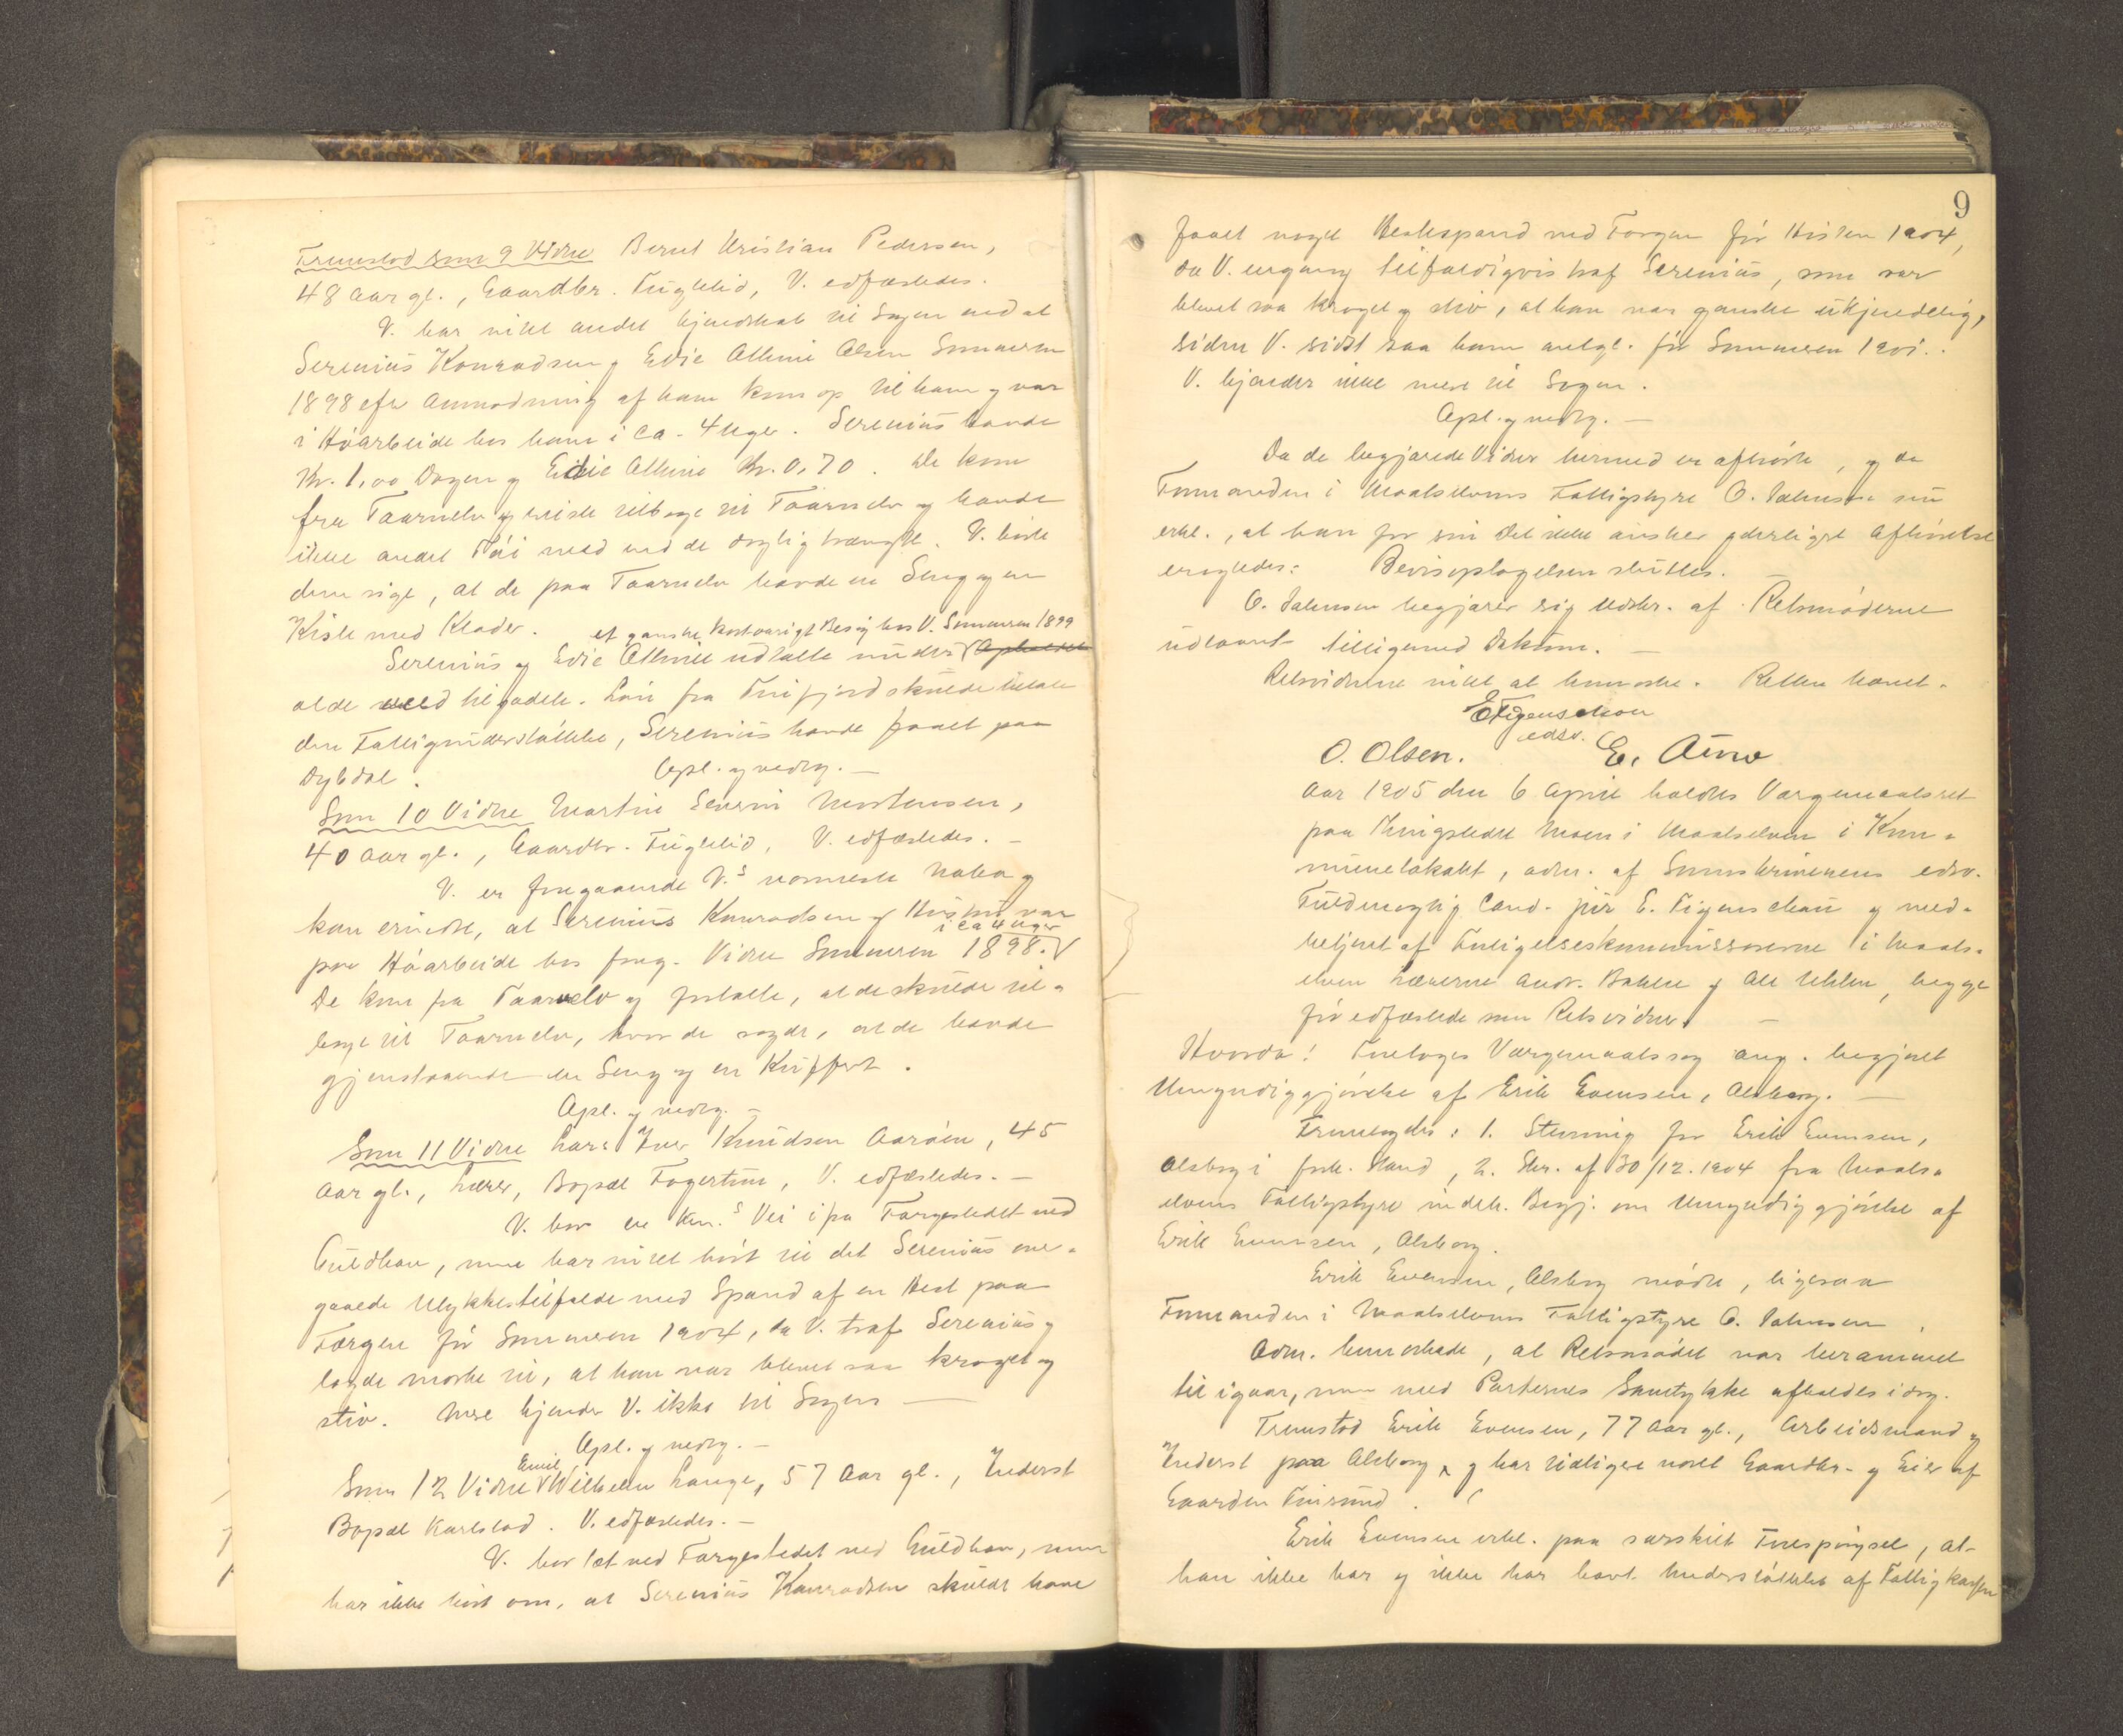 Fremstod som 9 Vidne Bernt Kristian Pedersen,
48 Aar gl., Gaardbr. Fuglelid, V. edfæstedes.
V. har intet andet Kjendskab til Sagen end at
Serenius Konradsen og Edie Athine Olsen Sommeren
1898 efter Anmodning af ham kom op til ham og var
i Høarbeide hos ham i ca. 4 Uger. Serenius havde
Kr. 1,00 Dagen og Edie Athine Kr. 0,70. De kom
fra Taarnelv og reiste tilbage til Taarnelv og havde
ikke andet Tøi med end de daglig trængte. V. hørte
dem sige, at de paa Taarnelv havde en Seng og en
Kiste med Klæder.
et ganske kortvarigt Besøg hos V. Sommeren 1899
Serenius og Edie Athine udtalte under Opholdet
at de med til gadelt. Løn fra Finfjord skulde betale
den Fattigunderstøttelse, Serenius havde faaet paa
Dybdal. Opl. og vedtg. —
Som 10 Vidne Martin Severin Mortensen,
40 Aar gl., Gaardbr. Fuglelid, V. edfæstedes. —
V. er foregaaende V.s nærmeste Nabo og
kan erindre, at Serenius Konradsen og Hustru var
i ca 4 Uger
paa Høarbeide hos foreg. Vidne Sommeren 1898. V
De kom fra Taarnelv og fortalte, at de skulde til-
bage til Taarnelv, hvor de sagde, at de havde
gjenstaaende en Seng og en Kuffert.
Opl. og vedtg. —
Som 11 Vidne Lars Iver Knudsen Aarøen, 45
Aar gl., Lærer, Bopæl Fagertun, V. edfæstedes. —
V. bor en Km.s Vei ifra Færgestedet ved
Guldhav, men har intet hørt til det Serenius over-
gaaede Ulykkestilfælde med Spand af en Hest paa
Færgen før Sommeren 1904, da V. traf Serenius og
lagde mærke til, at han var blevet saa kroget og
stiv. Mere kjender V. ikke til Sagen —
Opl. og vedtg. —
Emil
Som 12 Vidne V Wilhelm Lange, 57 Aar gl., Inderst
Bopæl Karlstad. V. edfæstedes. —
V. bor tæt ved Færgestedet ved Guldhav, men
har ikke hørt om, at Serenius Konradsen skulde have
9
faaet noget Hestespand ved Færgen før Høsten 1904,
da V. engang tilfældigvis traf Serenius, som var
blevet saa kroget og stiv, at han var ganske ukjendelig,
siden V. sidst saa ham antgl. før Sommeren 1901..
V. kjender ikke mere til Sagen.
Opl. og vedtg. —
Da de begjærede Vidner hermed er afhørte, og da
Formanden i Maalselvens Fattigstyre O. Johnsen nu
erkl., at han for sin Del ikke ønsker yderligere Afhørelse
eragtedes: Bevisoptagelsen sluttes.
O. Johnsen begjærer sig Udskr. af Retsmøderne
udlaant tilligemed Dokum. —
Retsvidnene intet at bemærke. Retten hævet.
E Figenschou
edsv.
O. Olsen. E. Aune
Aar 1905 den 6 April holdtes Værgemaalsret
paa Thingstedet Moen i Maalselven i Kom-
munelokalet, adm. af Sorenskriverens edsv.
Fuldmægtig Cand. jur E. Figenschau og med-
betjent af Forligelseskommissærerne i Maals-
elven Lærerne Andr. Bakken og Ole Uhlen, begge
før edfæstede som Retsvidner. —
Hvorda: Foretoges Værgemaalssag ang. begjært
Umyndiggjørelse af Erik Evensen, Alsborg. —
Fremlagdes: 1. Stevning for Erik Evensen,
Alsborg i fork. Stand, 2. Skr. af 30/12.1904 fra Maals-
elvens Fattigstyre indeh. Begj. om Umyndiggjørelse af
Erik Evensen, Alsborg.
Erik Evensen, Alsborg mødte, ligesaa
Formanden i Maalselvens Fattigstyre O. Johnsen.
Adm. bemærkede, at Retsmødet var berammet
til igaar, men med Parternes Samtykke afholdes idag.
Fremstod Erik Evensen, 77 Aar gl., Arbeidsmand og
Inderst paa Alsborg, og har tidligere været Gaardbr. og Eier af
Gaarden Finsund.
Erik Evensen erkl. paa særskilt Forespørgsel, at
han ikke har og ikke har havt Understøttelse af Fattigkassen